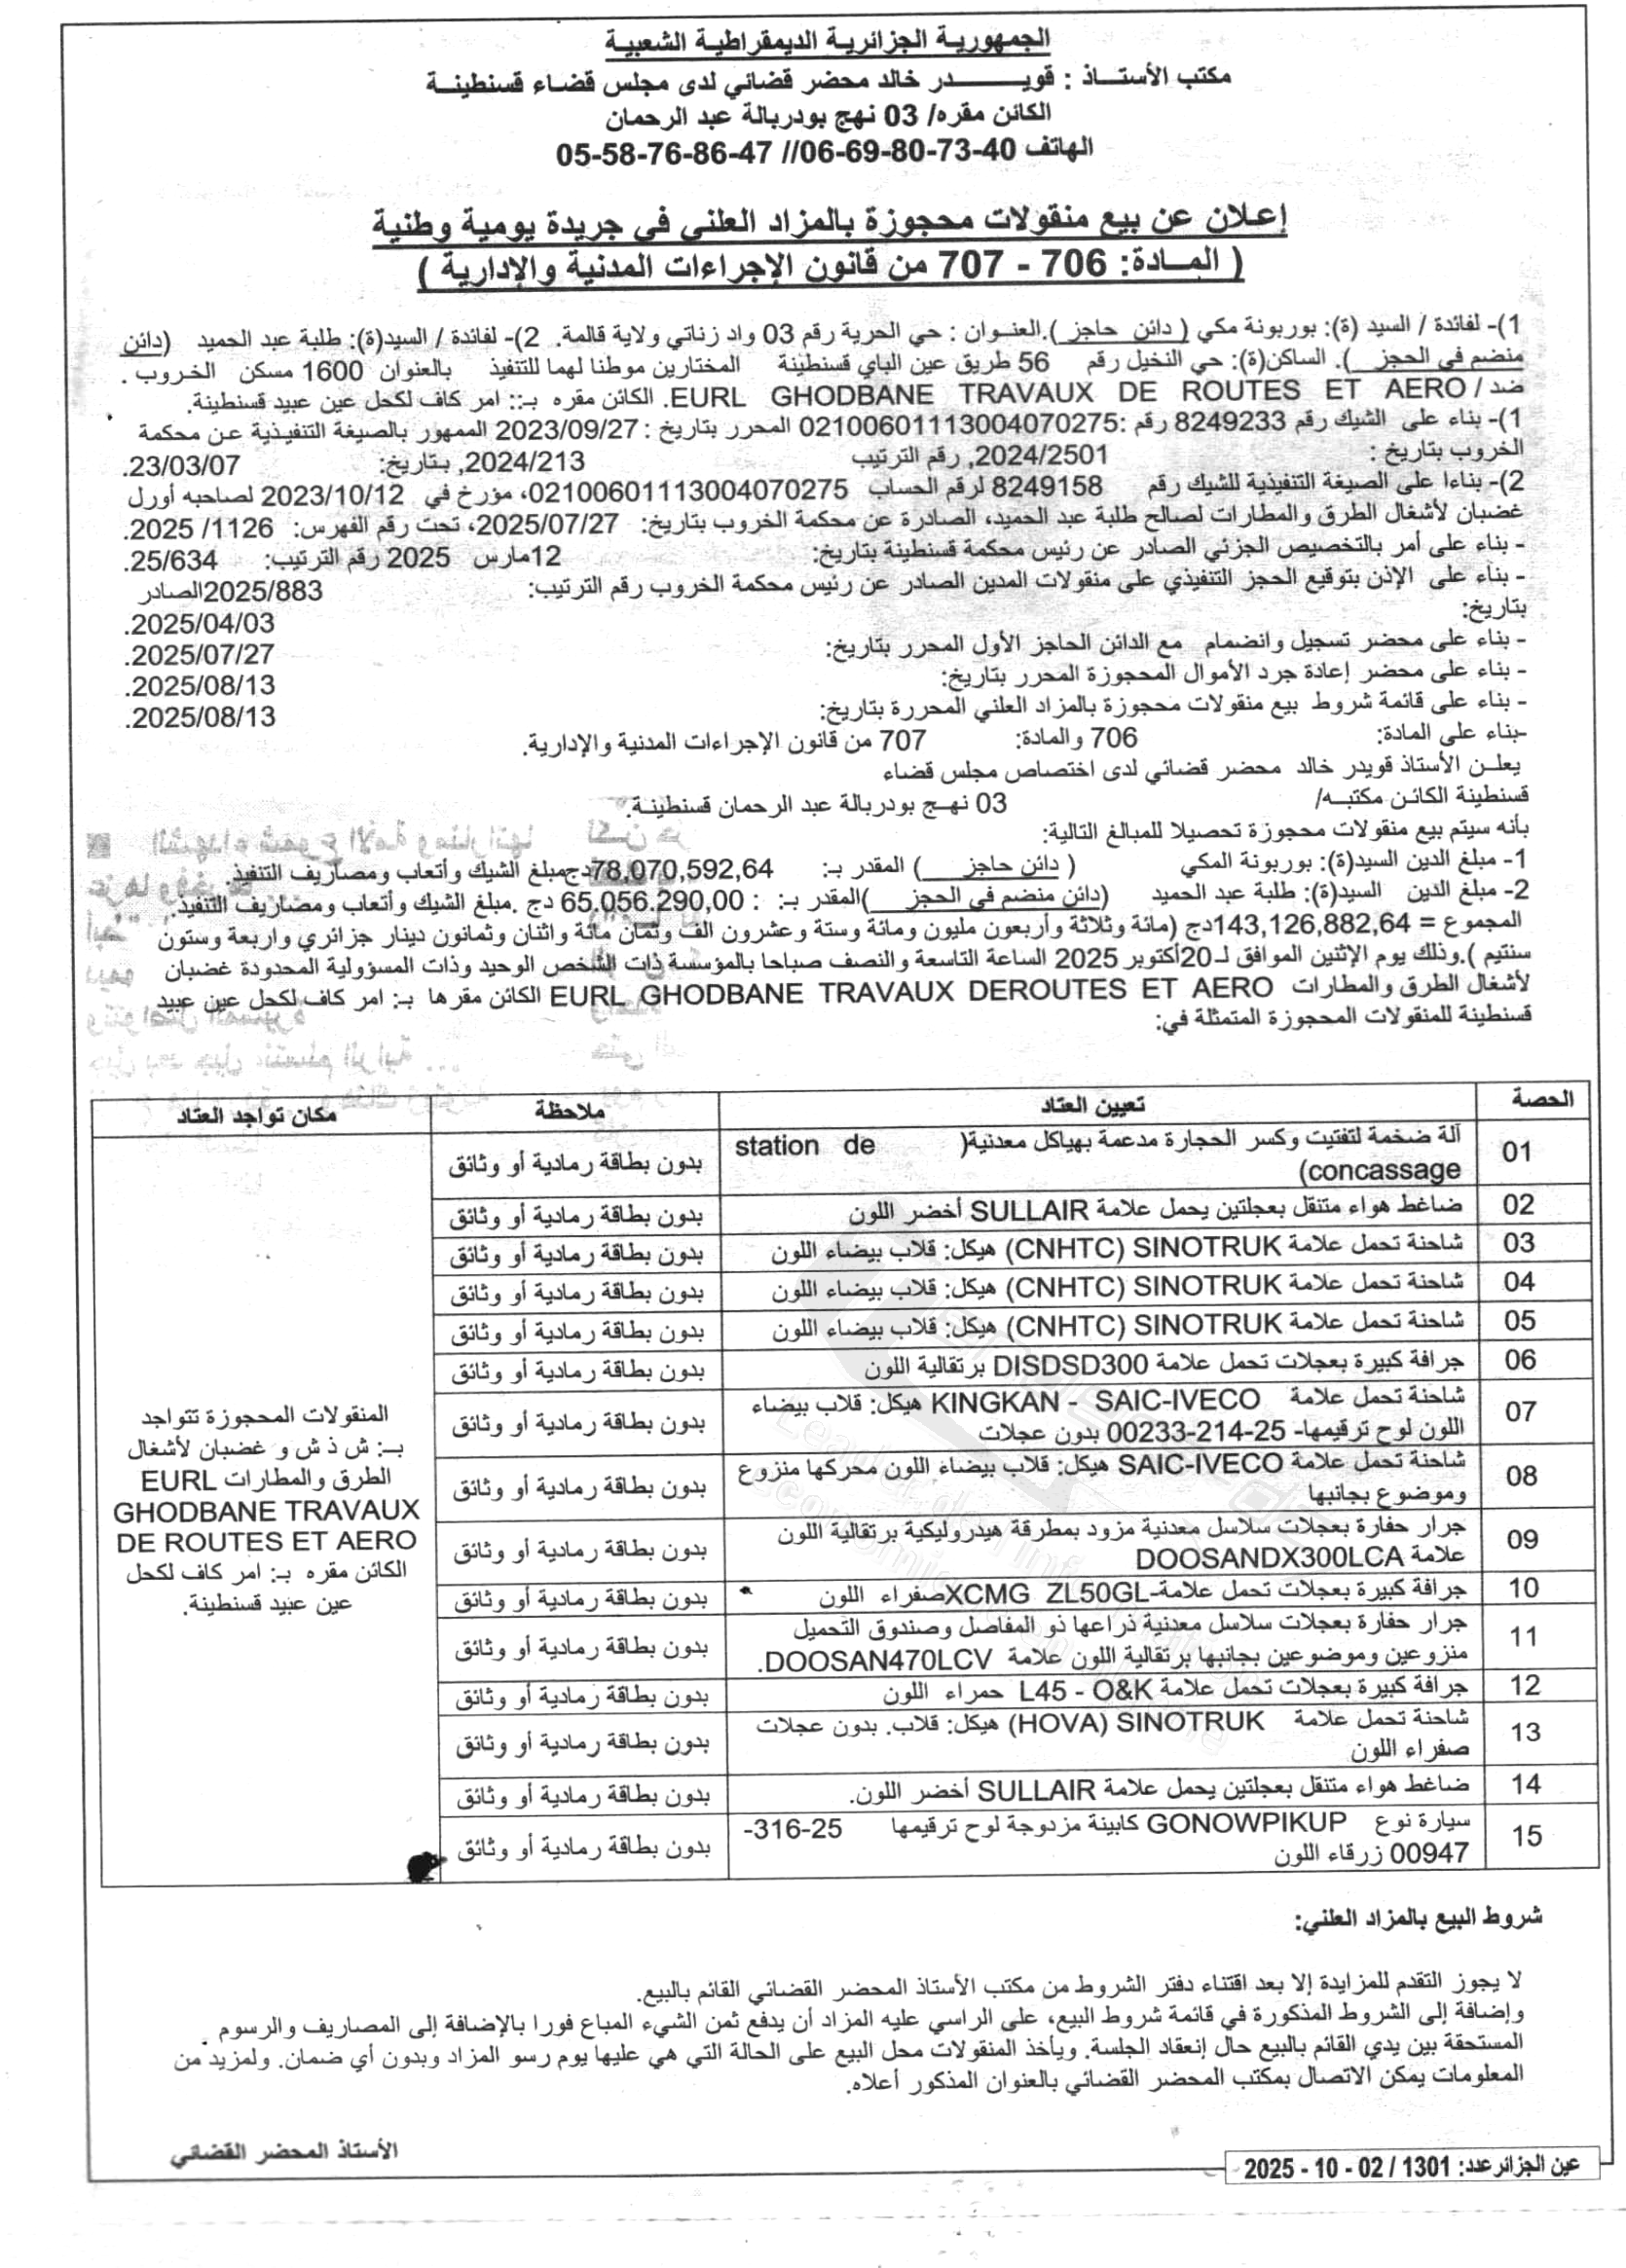 الجمهورية الجزائرية الديمقراطية الشعبية
مكتب الأستـــاذ : قويـــــــدر خالد محضر قضائي لدى مجلس قضاء قسنطينـة
الكائن مقره/ 03 نهج بودربالة عبد الرحمان
الهاتف 40-73-80-69-06// 47-86-76-58-05
إعـلان عن بيع منقولات محجوزة بالمزاد العلني في جريدة يومية وطنية
( المــادة: 706 - 707 من قانون الإجراءات المدنية والإدارية )
1)- لفائدة / السيد (ة): بوربونة مكي ( دائن حاجز ).العنـوان : حي الحرية رقم 03 واد زناتي ولاية قالمة. 2)- لفائدة / السيد(ة): طلبة عبد الحميد (دائن
منضم في الحجز ). الساكن(ة): حي النخيل رقم 56 طريق عين الباي قسنطينة المختارين موطنا لهما للتنفيذ بالعنوان 1600 مسكن الخروب .
ضد / EURL GHODBANE TRAVAUX DE ROUTES ET AERO. الكائن مقره بـ:: امر كاف لكحل عين عبيد قسنطينة.
1)- بناء على الشيك رقم 8249233 رقم :02100601113004070275 المحرر بتاريخ : 2023/09/27 الممهور بالصيغة التنفيذية عن محكمة
الخروب بتاريخ : 2024/2501, رقم الترتيب 2024/213, بتاريخ: 23/03/07.
2)- بناءا على الصيغة التنفيذية للشيك رقم 8249158 لرقم الحساب 02100601113004070275، مؤرخ في 2023/10/12 لصاحبه أورل
غضبان لأشغال الطرق والمطارات لصالح طلبة عبد الحميد، الصادرة عن محكمة الخروب بتاريخ: 2025/07/27، تحت رقم الفهرس: 1126/ 2025.
- بناء على أمر بالتخصيص الجزئي الصادر عن رئيس محكمة قسنطينة بتاريخ: 12مارس 2025 رقم الترتيب: 25/634.
- بناء على الإذن بتوقيع الحجز التنفيذي على منقولات المدين الصادر عن رئيس محكمة الخروب رقم الترتيب: 2025/883الصادر
بتاريخ: 2025/04/03.
- بناء على محضر تسجيل وانضمام مع الدائن الحاجز الأول المحرر بتاريخ: 2025/07/27.
- بناء على محضر إعادة جرد الأموال المحجوزة المحرر بتاريخ: 2025/08/13.
- بناء على قائمة شروط بيع منقولات محجوزة بالمزاد العلني المحررة بتاريخ: 2025/08/13.
-بناء على المادة: 706 والمادة: 707 من قانون الإجراءات المدنية والإدارية.
يعلـن الأستاذ قويدر خالد محضر قضائي لدى اختصاص مجلس قضاء
قسنطينة الكائن مكتبـه/ 03 نهـج بودربالة عبد الرحمان قسنطينـة.
بأنه سيتم بيع منقولات محجوزة تحصيلا للمبالغ التالية:
1- مبلغ الدين السيد(ة): بوربونة المكي ( دائن حاجز ) المقدر بـ: 78,070,592,64دج مبلغ الشيك وأتعاب ومصاريف التنفيذ.
2- مبلغ الدين السيد(ة): طلبة عبد الحميد (دائن منضم في الحجز )المقدر بـ: : 65.056.290,00 دج .مبلغ الشيك وأتعاب ومصاريف التنفيذ.
المجموع = 143,126,882,64دج (مائة وثلاثة وأربعون مليون ومائة وستة وعشرون الف وثمان مائة واثنان وثمانون دينار جزائري واربعة وستون
سنتيم ).وذلك يوم الإثنين الموافق لـ20أكتوبر 2025 الساعة التاسعة والنصف صباحا بالمؤسسة ذات الشخص الوحيد وذات المسؤولية المحدودة غضبان
لأشغال الطرق والمطارات EURL GHODBANE TRAVAUX DEROUTES ET AERO الكائن مقرها بـ: امر كاف لكحل عين عبيد
قسنطينة للمنقولات المحجوزة المتمثلة في:
الحصة تعيين العتاد ملاحظة مكان تواجد العتاد
01 آلة ضخمة لتفتيت وكسر الحجارة مدعمة بهياكل معدنية( station de
concassage) بدون بطاقة رمادية أو وثائق
02 ضاغط هواء متنقل بعجلتين يحمل علامة SULLAIR أخضر اللون بدون بطاقة رمادية أو وثائق
03 شاحنة تحمل علامة CNHTC) SINOTRUK) هيكل: قلاب بيضاء اللون بدون بطاقة رمادية أو وثائق
04 شاحنة تحمل علامة CNHTC) SINOTRUK) هيكل: قلاب بيضاء اللون بدون بطاقة رمادية أو وثائق
05 شاحنة تحمل علامة CNHTC) SINOTRUK) هيكل: قلاب بيضاء اللون بدون بطاقة رمادية أو وثائق
06 جرافة كبيرة بعجلات تحمل علامة DISDSD300 برتقالية اللون بدون بطاقة رمادية أو وثائق
07 شاحنة تحمل علامة KINGKAN - SAIC-IVECO هيكل: قلاب بيضاء
اللون لوح ترقيمها- 25-214-00233 بدون عجلات بدون بطاقة رمادية أو وثائق
08 شاحنة تحمل علامة SAIC-IVECO هيكل: قلاب بيضاء اللون محركها منزوع
وموضوع بجانبها بدون بطاقة رمادية أو وثائق
09 جرار حفارة بعجلات سلاسل معدنية مزود بمطرقة هيدروليكية برتقالية اللون
علامة DOOSANDX300LCA بدون بطاقة رمادية أو وثائق
10 جرافة كبيرة بعجلات تحمل علامة-XCMG ZL50GLصفراء اللون بدون بطاقة رمادية أو وثائق
11 جرار حفارة بعجلات سلاسل معدنية ذراعها ذو المفاصل وصندوق التحميل
منزوعين وموضوعين بجانبها برتقالية اللون علامة DOOSAN470LCV. بدون بطاقة رمادية أو وثائق
12 جرافة كبيرة بعجلات تحمل علامة L45 - O&K حمراء اللون بدون بطاقة رمادية أو وثائق
13 شاحنة تحمل علامة HOVA) SINOTRUK) هيكل: قلاب. بدون عجلات
صفراء اللون بدون بطاقة رمادية أو وثائق
14 ضاغط هواء متنقل بعجلتين يحمل علامة SULLAIR أخضر اللون. بدون بطاقة رمادية أو وثائق
15 سيارة نوع GONOWPIKUP كابينة مزدوجة لوح ترقيمها 25-316-
00947 زرقاء اللون بدون بطاقة رمادية أو وثائق
المنقولات المحجوزة تتواجد
بـ: ش ذ ش و غضبان لأشغال
الطرق والمطارات EURL
GHODBANE TRAVAUX
DE ROUTES ET AERO
الكائن مقره بـ: امر كاف لكحل
عين عبيد قسنطينة.
شروط البيع بالمزاد العلني:
لا يجوز التقدم للمزايدة إلا بعد اقتناء دفتر الشروط من مكتب الأستاذ المحضر القضائي القائم بالبيع.
وإضافة إلى الشروط المذكورة في قائمة شروط البيع، على الراسي عليه المزاد أن يدفع ثمن الشيء المباع فورا بالإضافة إلى المصاريف والرسوم
المستحقة بين يدي القائم بالبيع حال إنعقاد الجلسة. ويأخذ المنقولات محل البيع على الحالة التي هي عليها يوم رسو المزاد وبدون أي ضمان. ولمزيد من
المعلومات يمكن الاتصال بمكتب المحضر القضائي بالعنوان المذكور أعلاه.
الأستاذ المحضر القضائي
عين الجزائر عدد: 1301 / 02 - 10 - 2025